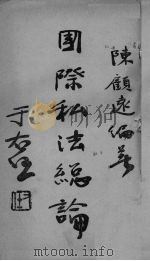 陳顧遠編著
國際私法總論
于右任
www.mtoou.info